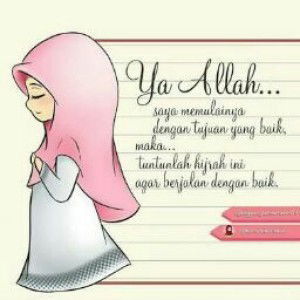 Ya Allah...
saya memulainya
dengan tujuan yang baik,
maka...
tuntunlah hijrah ini
agar berjalan dengan baik.